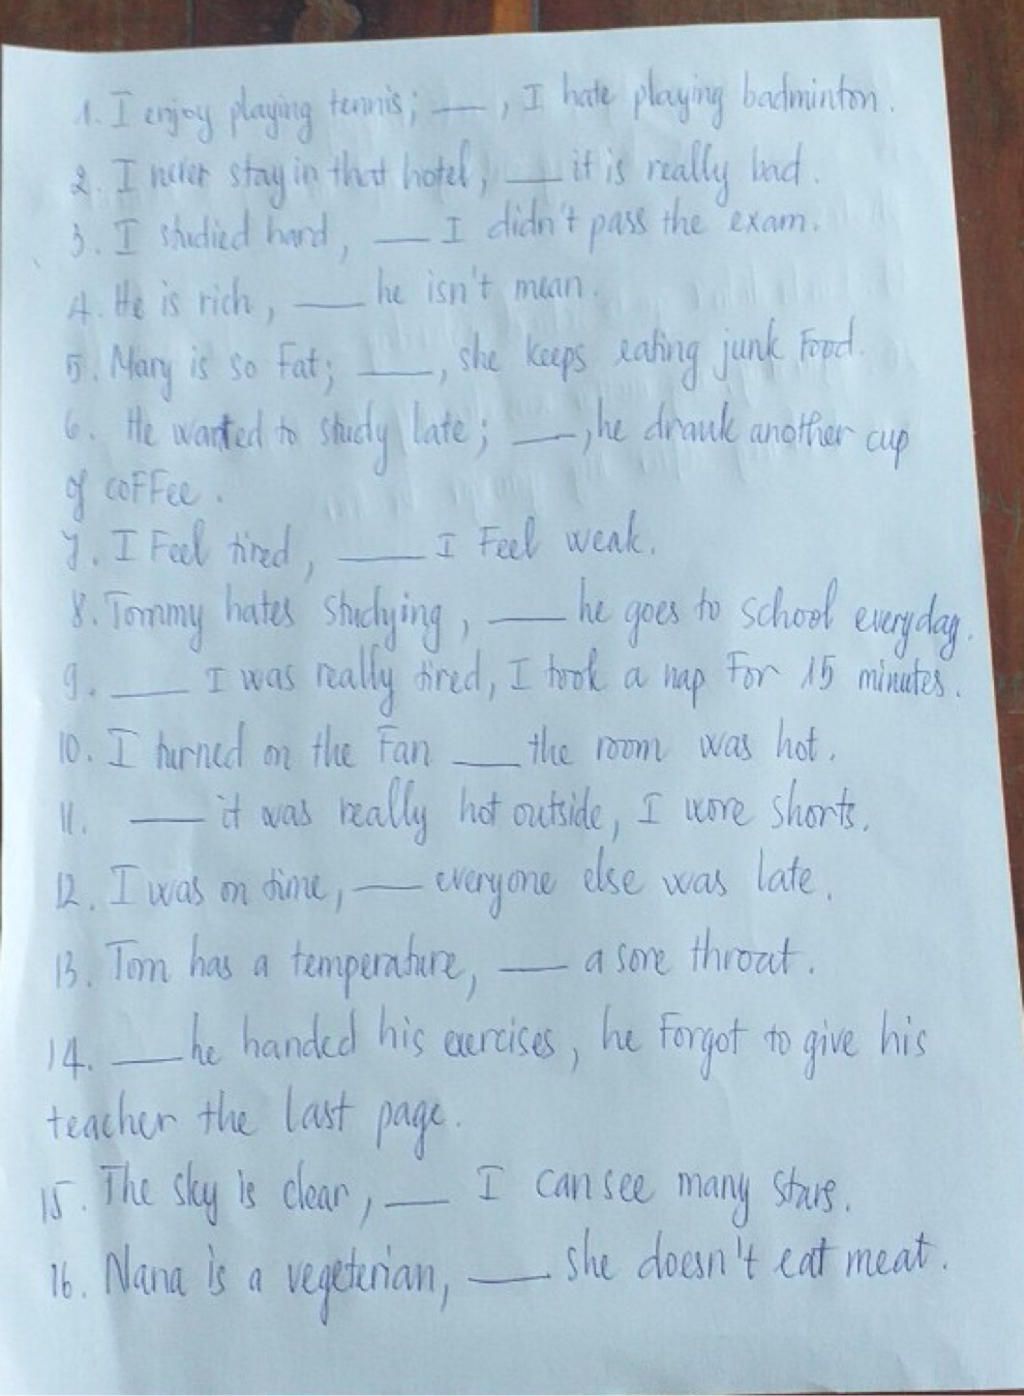 1. I enjoy playing tennis; ___, I hate playing badminton.
2. I never stay in that hotel, ___ it is really bad.
3. I studied hard, ___ I didn't pass the exam.
4. He is rich, ___ he isn't mean.
5. Mary is so Fat; ___, she keeps eating junk Food.
6. He wanted to study late; ___, he drank another cup
of coFFee.
7. I Feel tired, ___ I Feel weak.
8. Tommy hates studying, ___ he goes to school everyday.
9. ___ I was really tired, I took a nap For 15 minutes.
10. I turned on the Fan ___ the room was hot.
11. ___ it was really hot outside, I wore shorts.
12. I was on time, ___ everyone else was late.
13. Tom has a temperature, ___ a sore throat.
14. ___ he handed his exercises, he Forgot to give his
teacher the last page.
15. The sky is clear, ___ I can see many stars.
16. Nana is a vegeterian, ___ she doesn't eat meat.